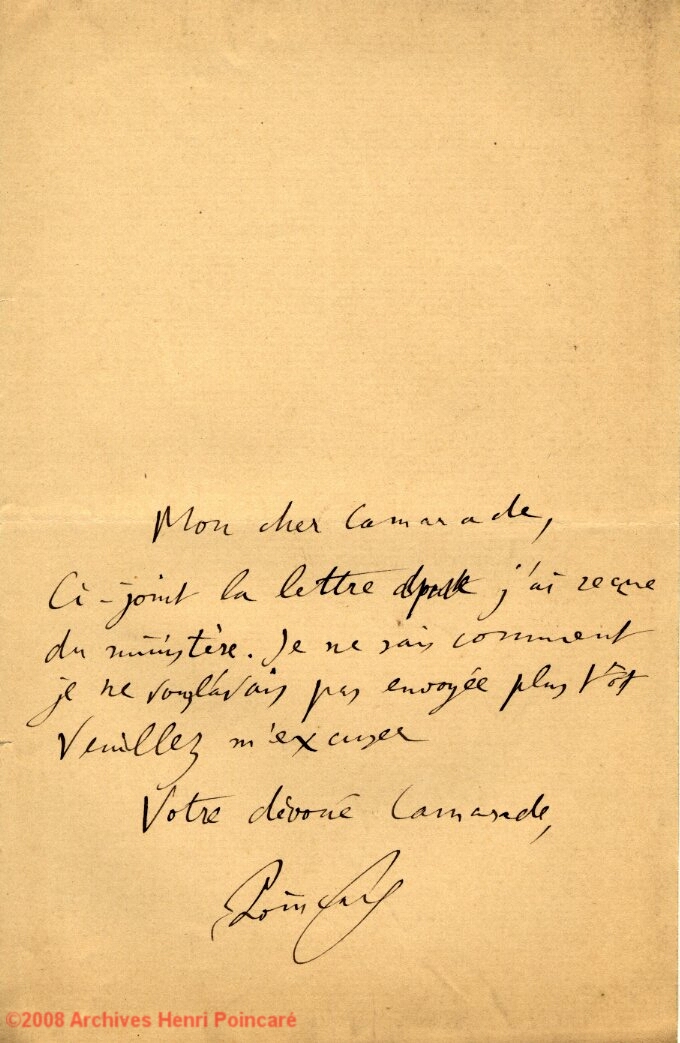 Mon cher Camarade,
Ci-joint la lettre que j'ai reçue
du ministère. Je ne sais comment
je ne vous l'avais pas envoyée plus tôt
Veuillez m'excuser
Votre dévoué Camarade,
Poincaré
©2008 Archives Henri Poincaré